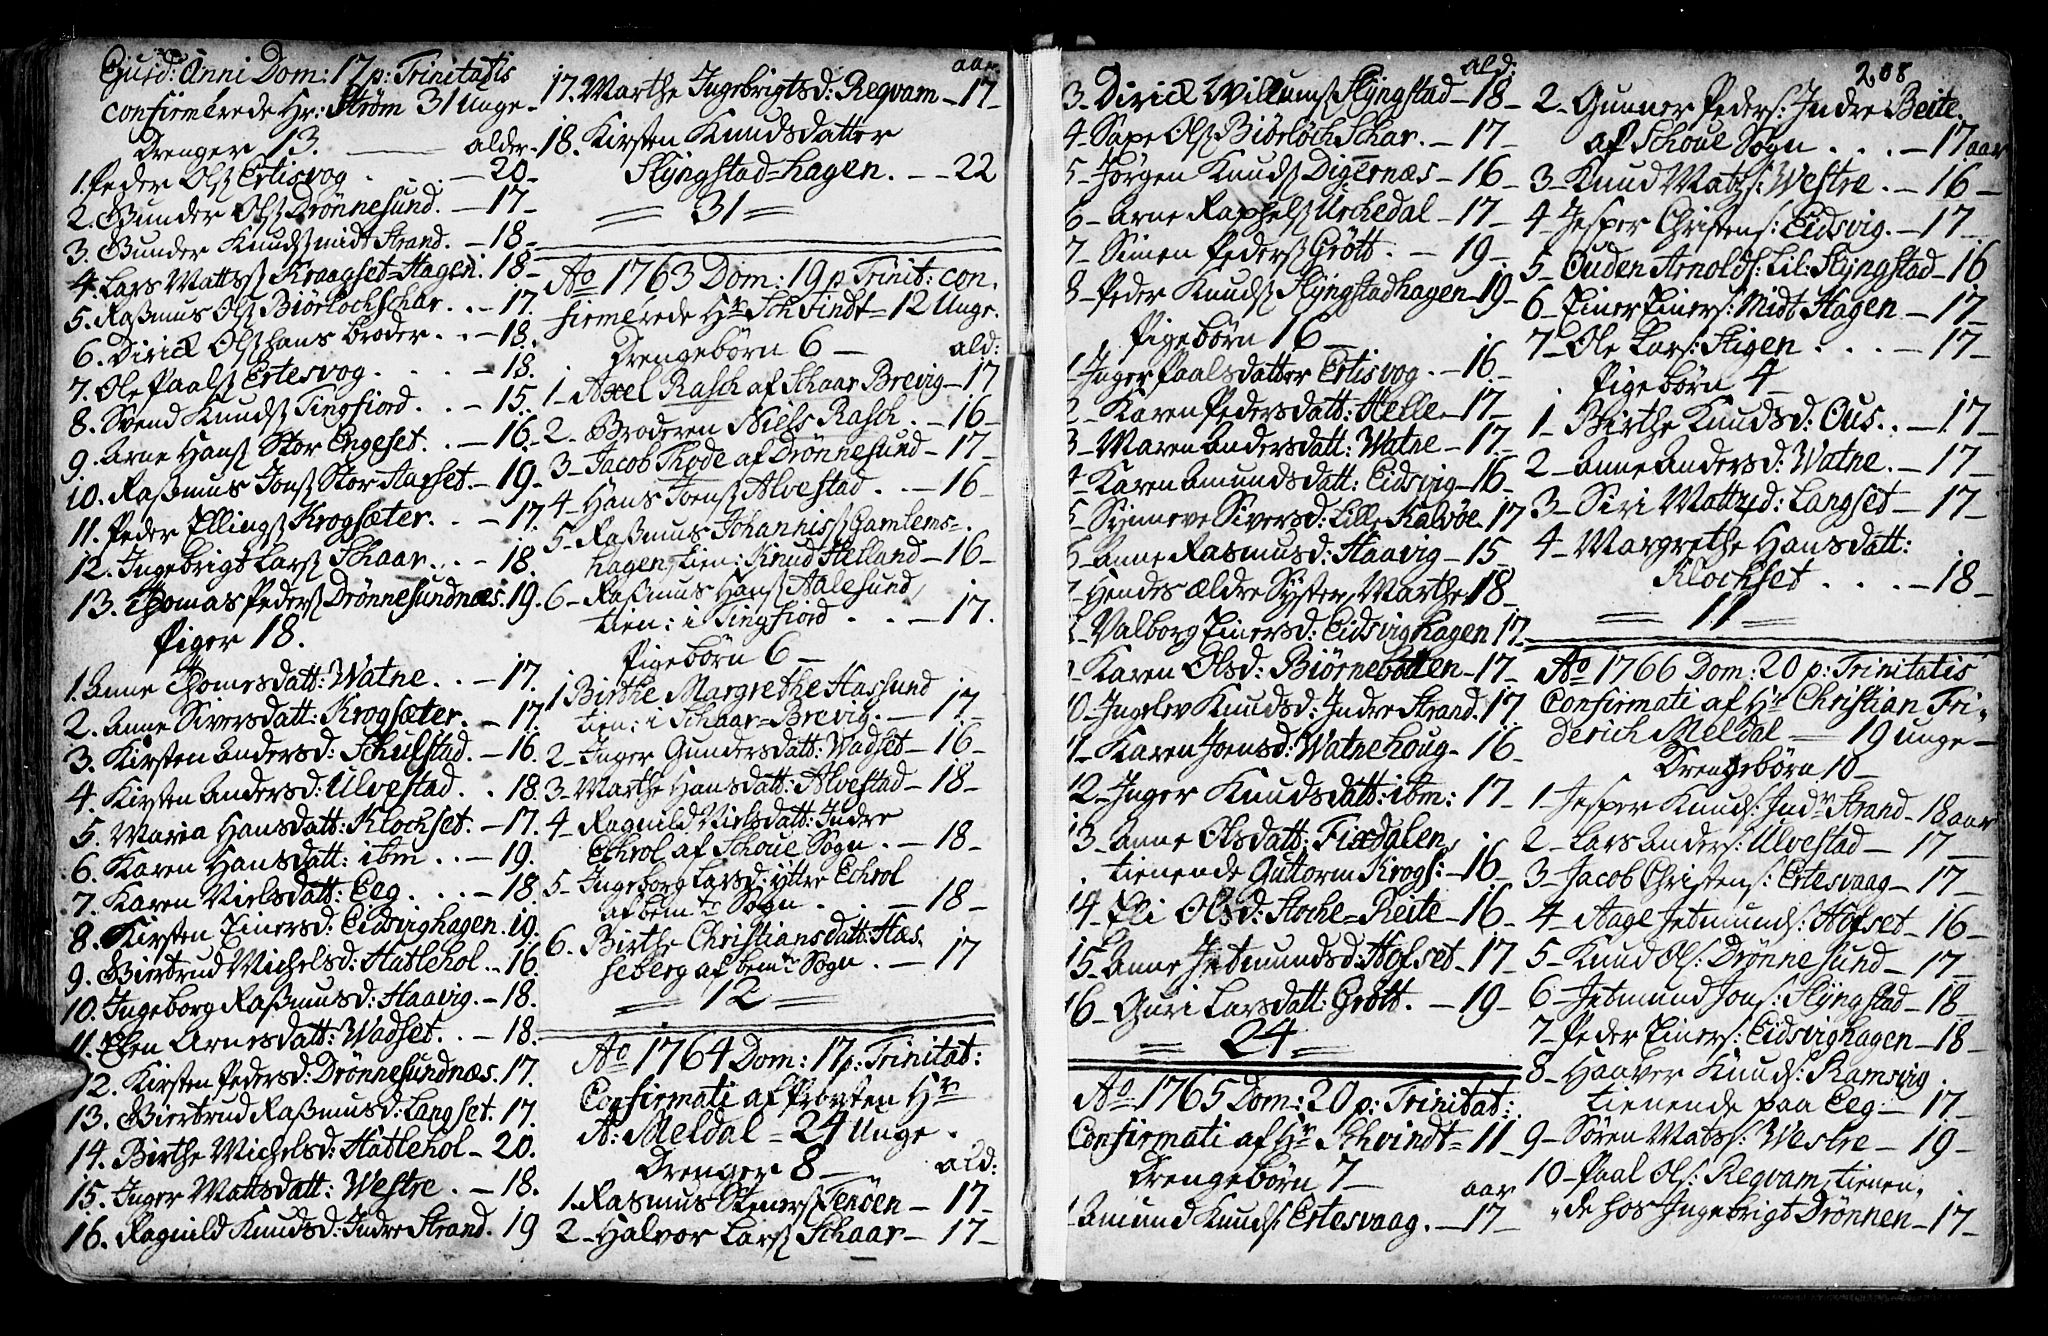 Ejusd: Anni Dom: 17 p: Trinitatis
confirmerede Hr: Strøm 31 Unge
Drenger 13. alder
1. Peder Ols: Ertisvog - 20
2. Gunder Ols: Drønnesund. - 17
3. Gunder Knuds: midt Strand. - 18
4. Lars Matts: Kraagset-Hagen. 18
5. Rasmus Ols: Biørlochschar. - 17.
6. Dirick Ols: hans broder. - 18.
7. Ole Paals: Ertesvog - 18.
8. Svend Knuds: Tingfiord. - 15.
9. Arne Hans: Stor Engeset. - 16.
10. Rasmus Jons: Stor Hafset. - 19.
11. Peder Ellings: Krogsæter. - 17.
12. Ingebrigt Lars: Schaar. - 18.
13. Thomas Peders: Drønnesundnæs. 19.
Piger 18.
1. Anne Thomesdatt: Watne. - 17.
2. Anne Siversdatt: Krogsæter. - 17.
3. Kirsten Andersd: Schulstad. - 16.
4. Kirsten Andersd: Ulvestad. 18.
5. Maria Hansdatt: Klochset. - 17.
6. Karen Hansdatt: ibm - 19.
7. Karen Nielsdatt: Eeg. - 18.
8. Kirsten Einersd: Eidsvighagen. 19.
9. Giertrud Michelsd: Hatlehol. 16.
10. Ingeborg Rasmusd: Haavig. - 18.
11. Elen Arnesdatt: Wadset. - 18.
12. Kirsten Pedersd: Drønnesundnæs. 17.
13. Giertrud Rasmusd: Langset. 17.
14. Birthe Michelsd: Hatlehol - 20.
15. Inger Mattsdatt: Westre. - 18.
16. Ragnild Knudsd: Indre Strand. 19
aar
17. Marthe Ingebrigtsd: Reqvam - 17
18. Kirsten Knudsdatter
Slyngstad-hagen. - 22
= 31 =
Ao 1763 Dom: 19 p Trinit: con,
firmerede Hr Schfindt = 12 Unge.
Drengebørn 6 - ald:
1 - Axel Rasch af Schaar Brevig - 17
2 - Broderen Niels Rasch. - 16
3 - Jacob Thode af Drønnesund - 17
4 - Hans Joens: Alvestad. - 16
5 - Rasmus Johannis: Gamlems-
hagen, tien: Knud Helland - 16
6 - Rasmus Hans: Aalesund,
tien: i Tingfiord - 17.
Pigebørn 6 -
1 Birthe Margrethe Hassund
tien: i Schaar-Brevig. - 17
2 - Inger Gundersdatt: Wadset - 16
3 - Marthe Hansdatt: Alvestad - 18
4 - Ragnild Nielsdatt: Indre
Echrol af Schoue Sogn. - 18
5 - Ingeborg Larsd: yttre Echrol
af bemte Sogn - 18
6. Birthe Christiansdatt: Hæs,
seberg af bemte Sogn. - 17
= 12 =
Ao 1764 Dom: 17 p: Trinitat:
Confirmati af Provsten Hr
A: Meldal = 24 Unge.
Drenger 8 - ald:
1. Rasmus Steners: Tenöen - 17
2 - Halvor Lars: Schaar - 17
ald:
3. Dirick Willums: Slyngstad - 18
4 - Saxe Ols: Biörloch Schar. - 17
5 - Jørgen Knuds: Digernæs - 16
6 - Arne Raphels: Urchedal - 17
7 - Simen Peders: Grött. - 19
8 - Peder Knuds: Slyngstadhagen - 19
Pigebørn 16 -
1 - Inger Paalsdatter Ertisvog. - 16
2 - Karen Pedersdatt: Helle - 17
3 - Maren Andersdatt: Watne - 17
4 - Karen Amundsdatt: Eidsvig - 16
5 - Synneve Siversd: Lille Kalvöe 17
6 - Anne Rasmusd: Haavig - 15
7 - Hendes ældre Syster, Marthe 18
8 - Valborg Einersd: Eidsvighagen 17
9 - Karen Olsd: Biørnebotten - 17
10 - Ingelev Knudsd: Indre Strand. 17
11 - Karen Joensd: Watnehoug - 16
12 - Inger Knudsdatt: ibm: 17
13 - Anne Olsdatt: Fixdalen,
tienende Guttorm Krogs: - 16
14 - Eli Olsd: Stoche-Reite - 16
15. Anne Jetmundsd: Hofset - 17
16 - Guri Larsdatt: Grött. - 19
= 24 =
Ao 1765 Dom: 20 p: Trinitat:
Confirmati af Hr Schvindt = 11
Drengebørn 7 - aar
1 - Amund Knuds: Ertesvaag. - 17
208
2 - Gunner Peders: Indre Beite
af Schoue Sogn - 17 aar
3 - Knud Mats: Westre. - 16
4 - Jesper Christens: Eidsvig. - 17
5 - Ouden Arnolds: Lil: Slyngstad - 16
6 - Einer Einers: Midt Hagen - 17
7 - Ole Lars: Stigen - 17
Pigebørn 4 -
1 - Birthe Knudsd: Ous. - 17
2 - Anne Andersd: Watne. - 17
3 - Siri Mattsd: Langset - 17
4 - Margrethe Hansdatt:
Klochset - 18
= 11 =
Ao 1766 Dom: 20 p: Trinitatis
Confirmati af Hr Christian Fri,
derich Meldal = 19 unge
Drengebørn 10 -
1 - Jesper Knuds: Indr Strand - 18 aar
2 - Lars Anders: Ulvestad - 17
3 - Jacob Christens: Ertesvaag - 17
4 - Aage Jetmunds: Hofset - 16
5 - Knud Ols: Drønnesund - 17
6 - Jetmund Jons: Slyngstad - 18
7 - Peder Einers: Eidsvighagen - 18
8 - Haaver Knuds: Ramsvig
tienende paa Eeg - 17
9 - Søren Mats: Westre - 19
10 - Paal Ols: Reqvam, tienen,
de hos Ingebrigt Drønnen - 17